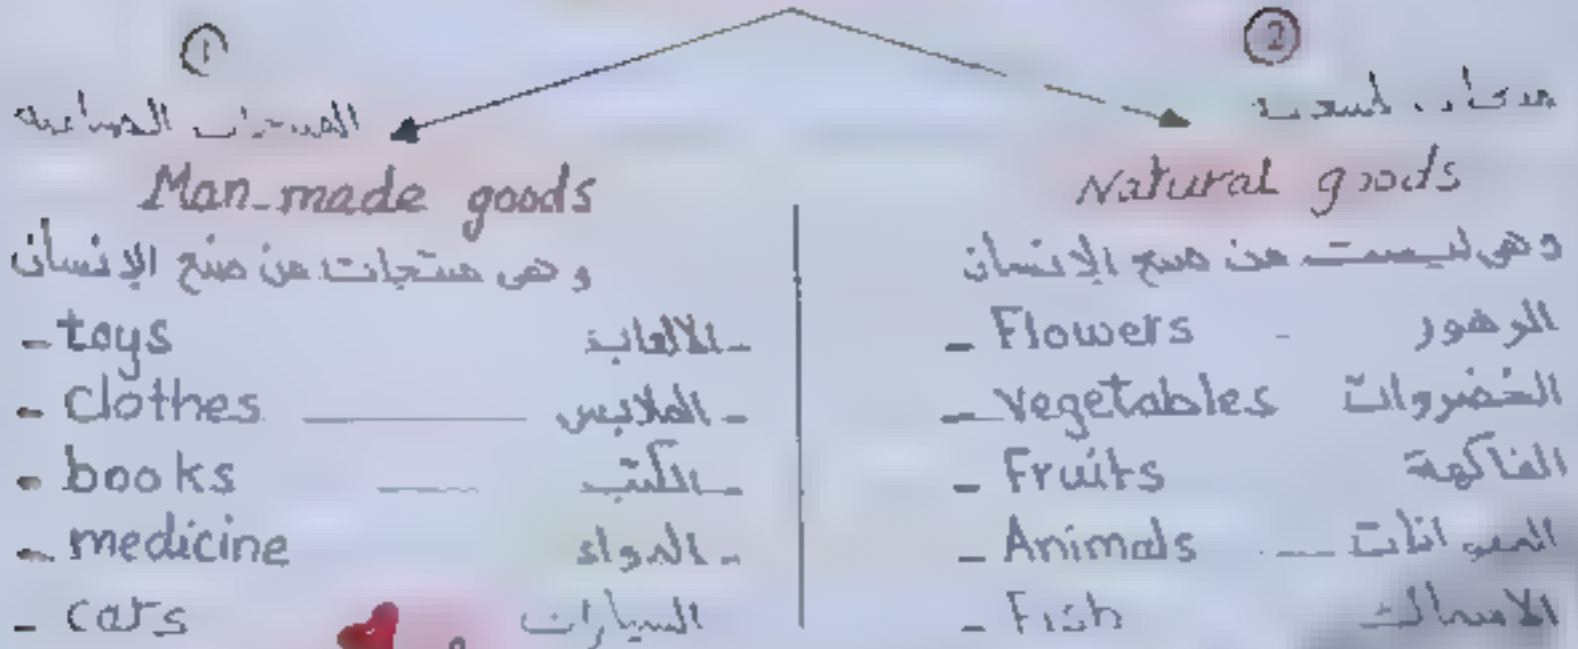 ①
المنتجات الصناعيه
Man-made goods
و هى منتجات من صنع الإنسان
- toys - للالعاب
- clothes - الملابس
- books - الكتب
- medicine - الدواء
- cars السيارات
②
Natural goods
وهى ليست من صنع الإنسان
- Flowers - الزهور
- vegetables الخضروات
- Fruits الفاكهة
- Animals الحيوانات
- Fish الاسماك